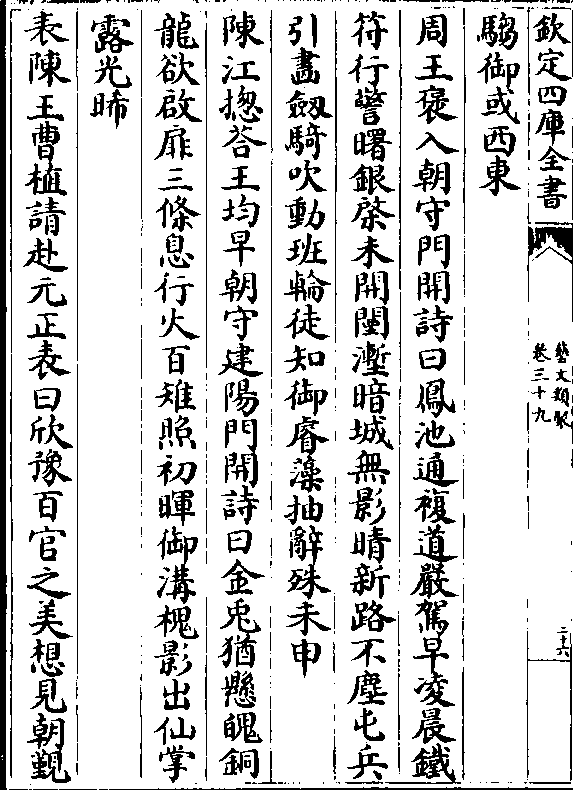 欽定四庫全書
藝文類聚
卷三十九
二十六
騶御或西東
周王褒入朝守門開詩曰鳳池通複道嚴駕早凌晨鐵
符行警曙銀棨未開闉漸暗城無影晴新路不塵屯兵
引畫劔騎吹動班輪徒知御睿藻抽辭殊未申
陳江揔荅王均早朝守建陽門開詩曰金兎猶懸魄銅
龍欲啟扉三條息行火百雉照初暉御溝槐影出仙掌
露光晞
表陳王曹植請赴元正表曰欣豫百官之美想見朝覲